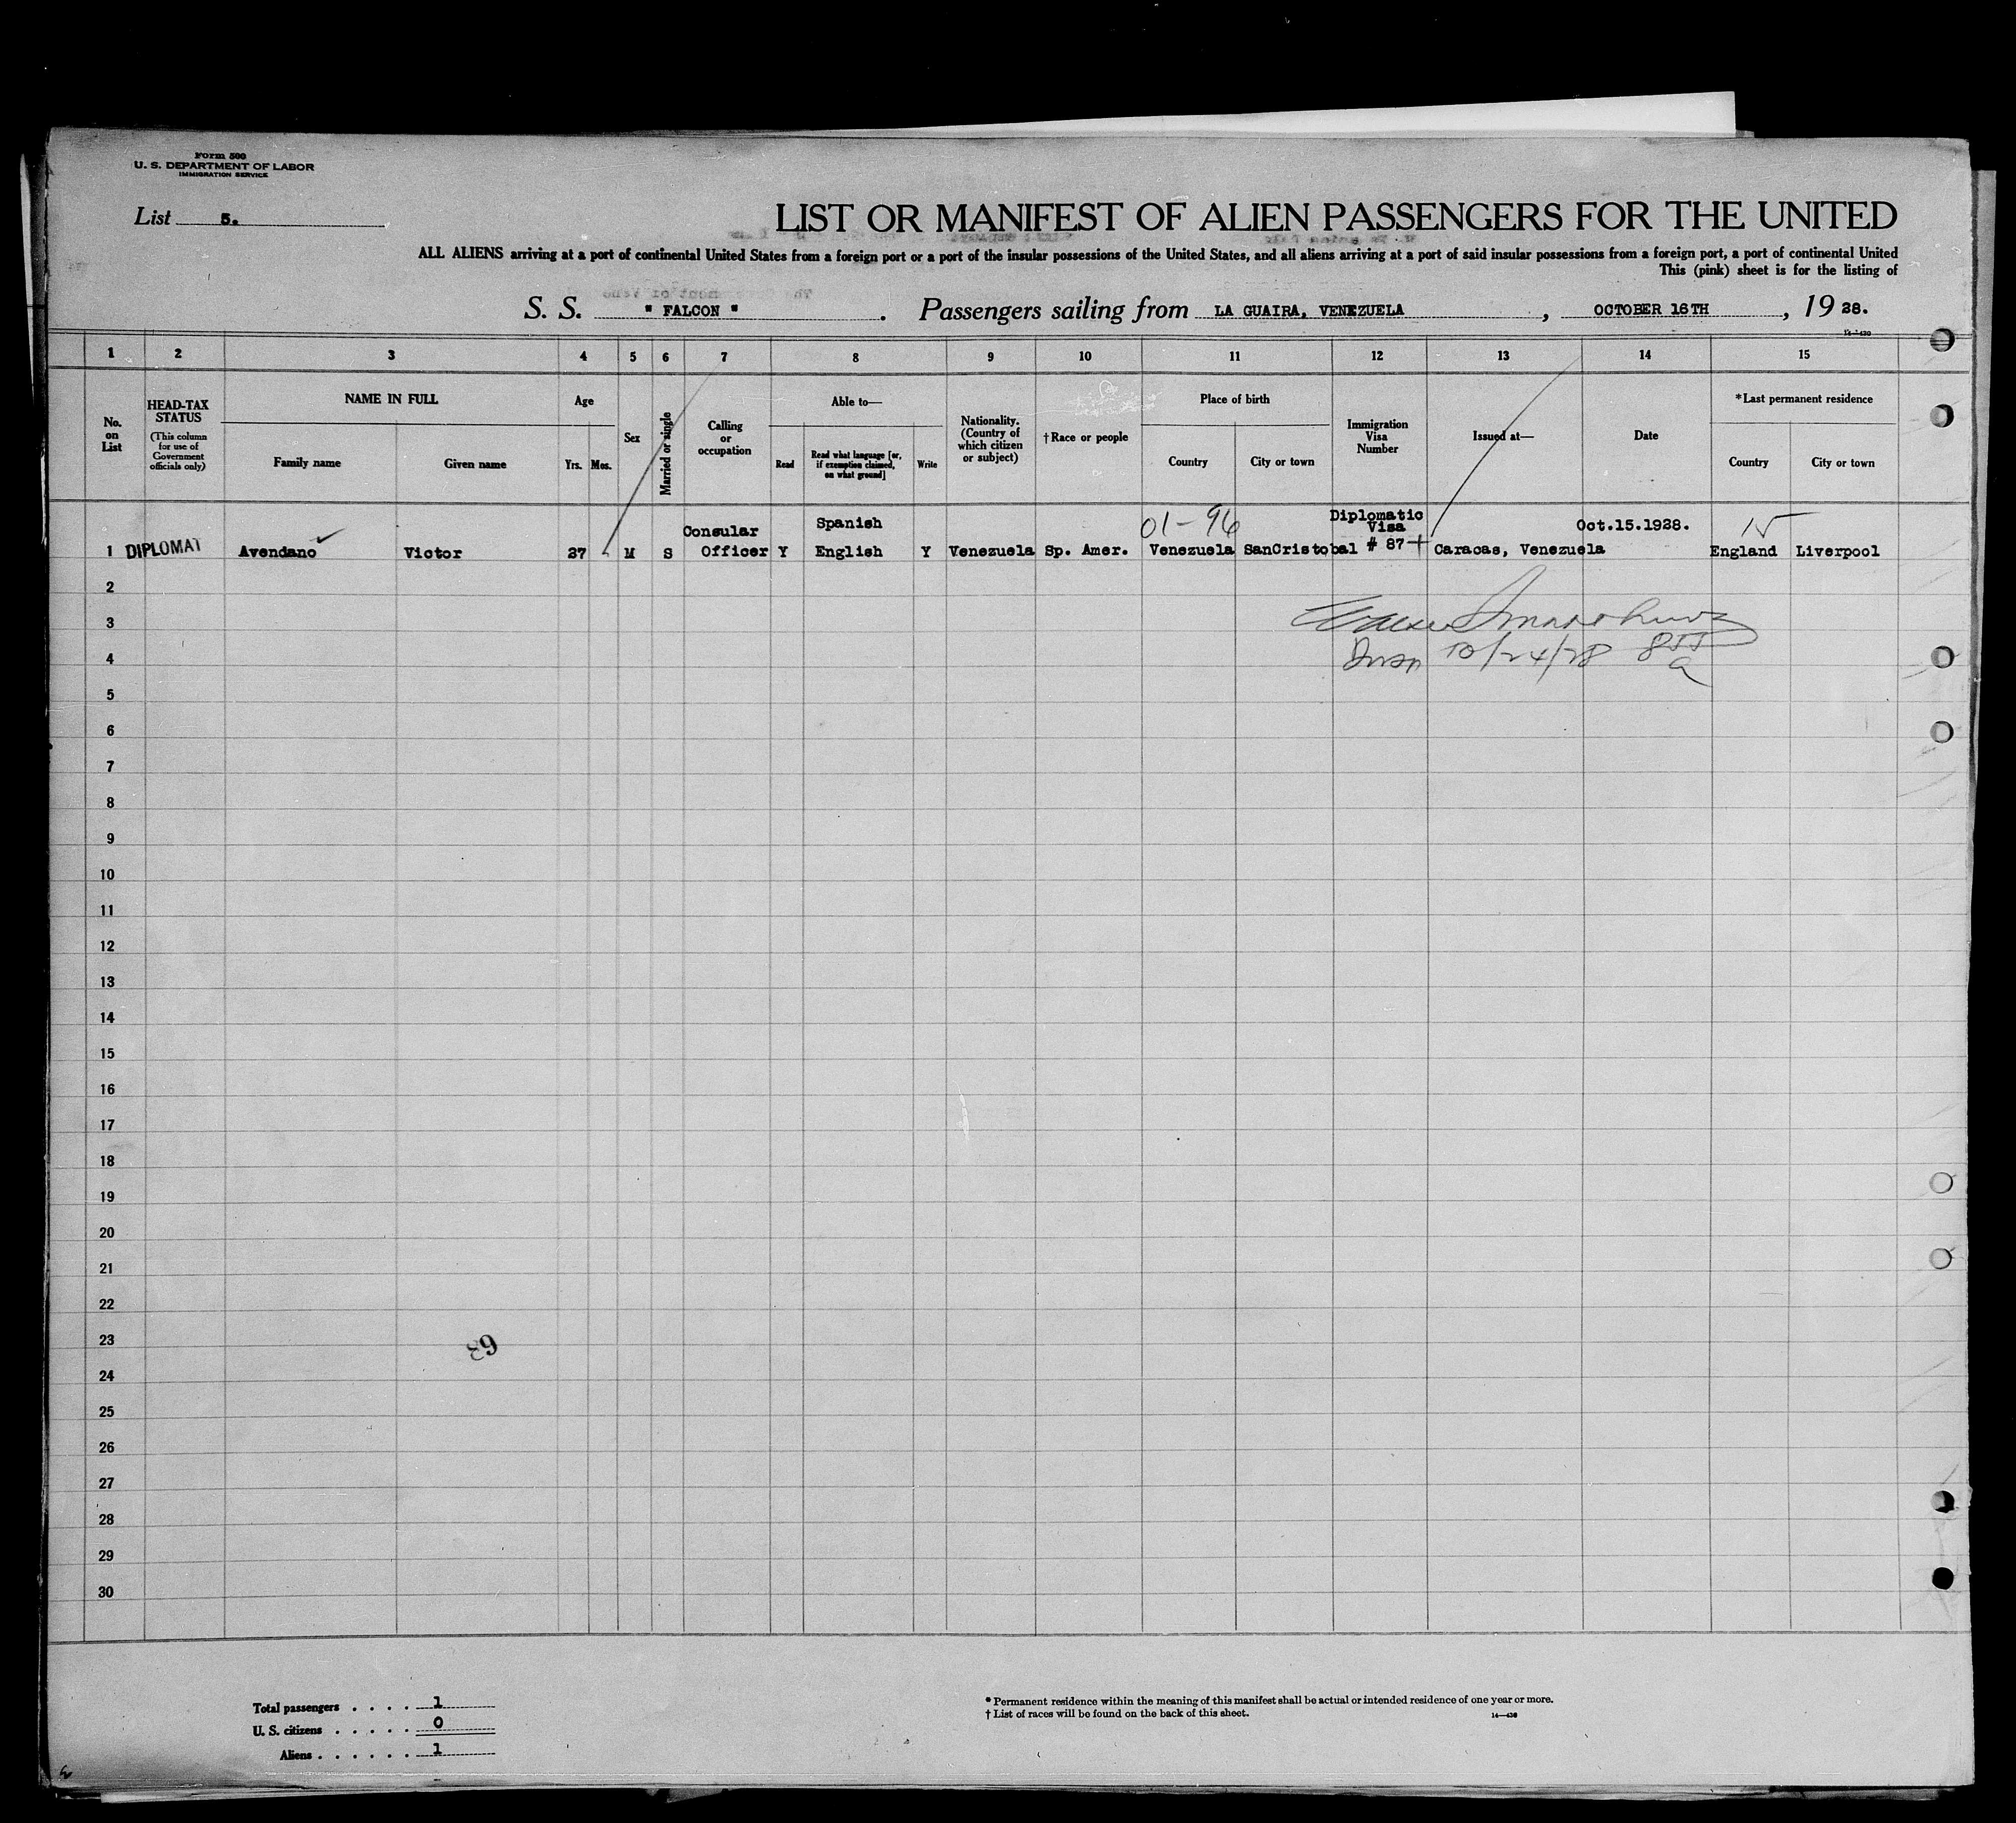 Form 500
U. S. DEPARTMENT OF LABOR
IMMIGRATION SERVICE
List 5.
LIST OR MANIFEST OF ALIEN PASSENGERS FOR THE UNITED
ALL ALIENS arriving at a port of continental United States from a foreign port or a port of the insular possessions of the United States, and all aliens arriving at a port of said insular possessions from a foreign port, a port of continental United
This (pink) sheet is for the listing of
S. S. " FALCON " . Passengers sailing from LA GUAIRA, VENEZUELA , OCTOBER 16TH , 19 28.
1 2 3 4 5 6 7 8 9 10 11 12 13 14 15
No. on List
HEAD-TAX STATUS
(This column for use of Government officials only)
NAME IN FULL
Family name
Given name
Age
Yrs.
Mos.
Sex
Married or single
Calling or occupation
Able to—
Read
Read what language [or, if exemption claimed, on what ground]
Write
Nationality. (Country of which citizen or subject)
†Race or people
Place of birth
Country
City or town
Immigration Visa Number
Issued at—
Date
*Last permanent residence
Country
City or town
1 DIPLOMAT Avendano Victor 27 M S Consular Officer Y Spanish English Y Venezuela Sp. Amer. 01-96 Venezuela SanCristobal Diplomatic Visa # 87 Caracas, Venezuela Oct.15.1928. 15 England Liverpool
2
3
4 10/24/28
5
6
7
8
9
10
11
12
13
14
15
16
17
18
19
20
21
22
23
24
25
26
27
28
29
30
Total passengers . . . . 1
U. S. citizens . . . . . 0
Aliens . . . . . . 1
* Permanent residence within the meaning of this manifest shall be actual or intended residence of one year or more.
† List of races will be found on the back of this sheet.